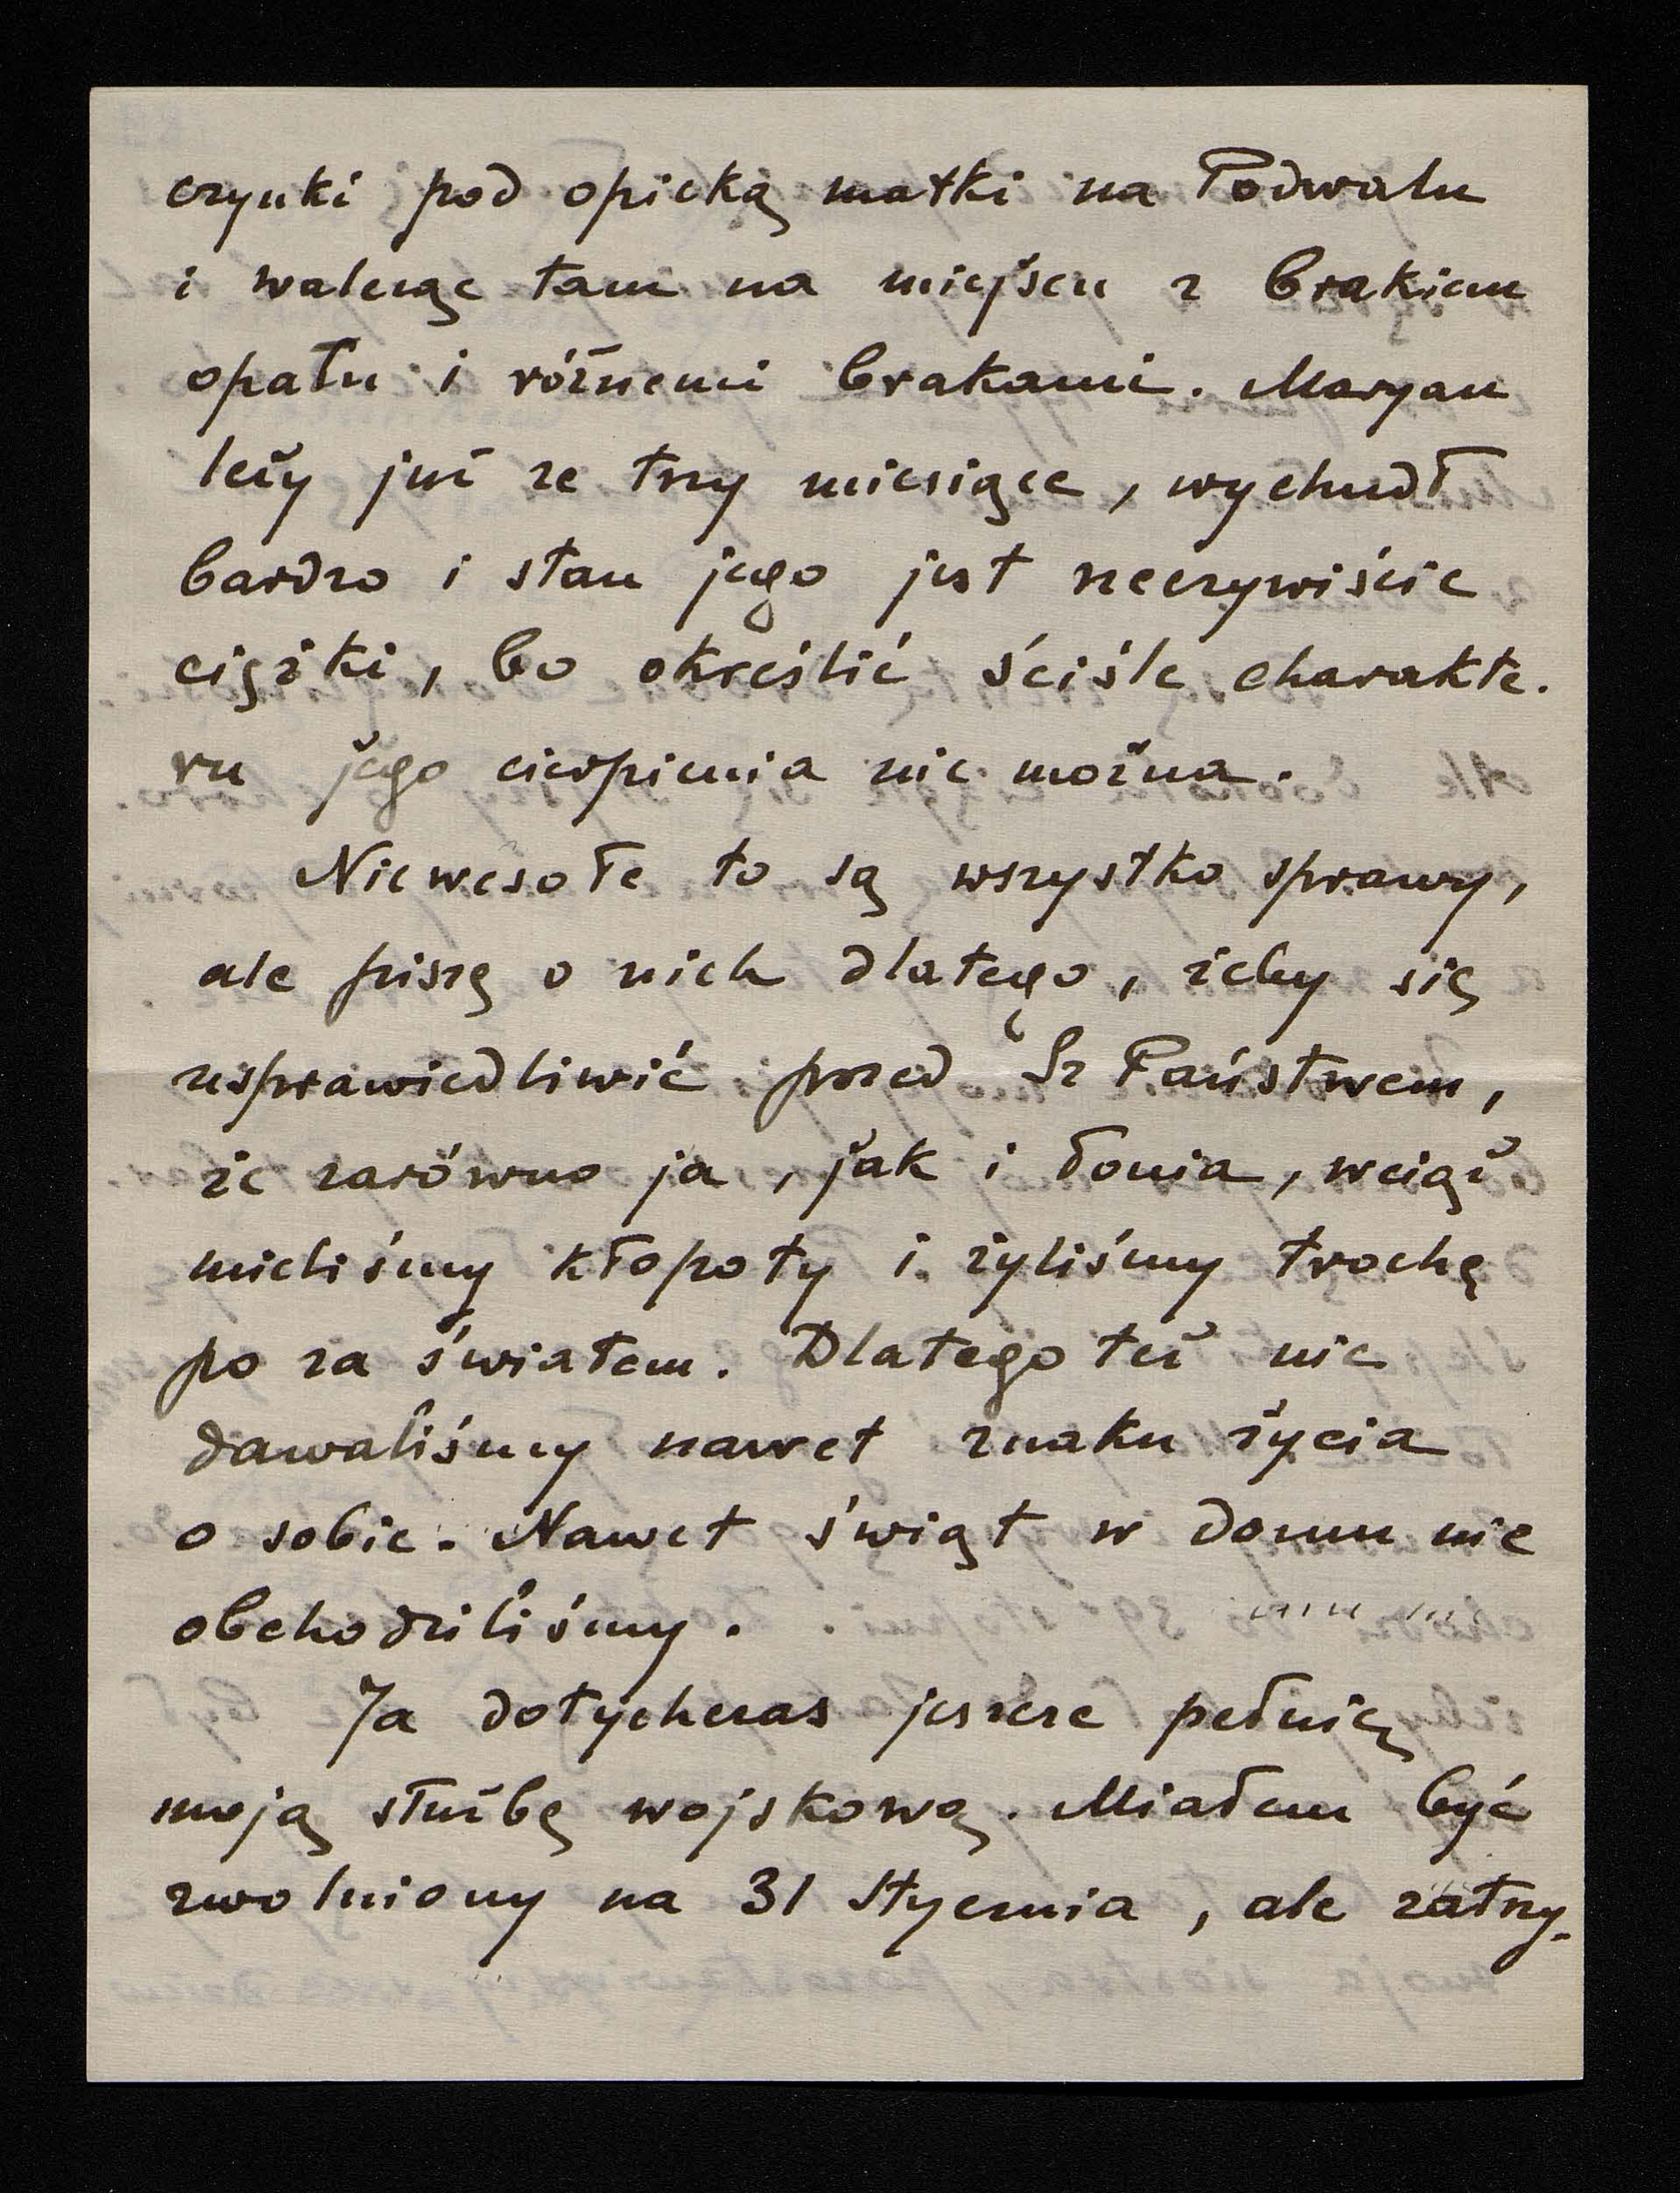 czynki pod opieką matki na Podwalu
i walcząc tam na miejscu z brakiem
opału i różnemi brakami. Maryan
leży już ze trzy miesiące, wychudł
bardzo i stan jego jest rzeczywiście
ciężki, bo określić ściśle charakte-
ru jego cierpienia nie można.
Niewesołe to są wszystko sprawy,
ale piszę o nich dlatego, żeby się
usprawiedliwić przed Sz Państwem,
że zarówno ja, jak i Tonia, wciąż
mieliśmy kłopoty i żyliśmy trochę
po za światem. Dlatego też nie
dawaliśmy nawet znaku życia
o sobie. Nawet świąt w domu nie
obchodziliśmy.
Ja dotychczas jeszcze pełnię
moją służbę wojskową. Miałem być
zwolniony na 31 stycznia, ale zatrzy-